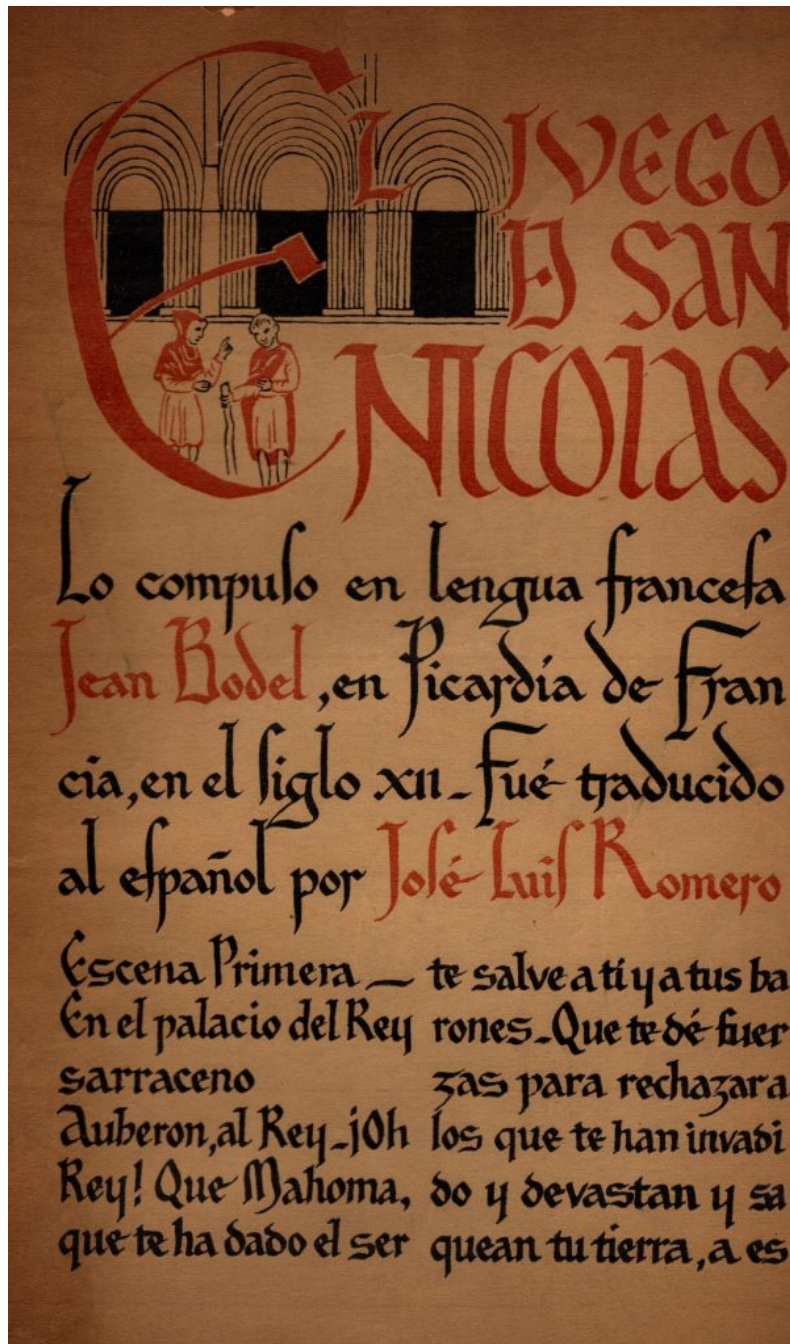 EL JVEGO
DE SAN
NICOLAS
Lo compuso en lengua francesa
Jean Bodel, en Picardía de Fran
cia, en el siglo XII - Fué traducido
al español por José Luis Romero
Escena Primera —
En el palacio del Rey
sarraceno
Auberon, al Rey - ¡Oh
Rey! Que Mahoma,
que te ha dado el ser
te salve a ti y a tus ba
rones - Que te dé fuer
zas para rechazar a
los que te han invadi
do y devastan y sa
quean tu tierra, a es